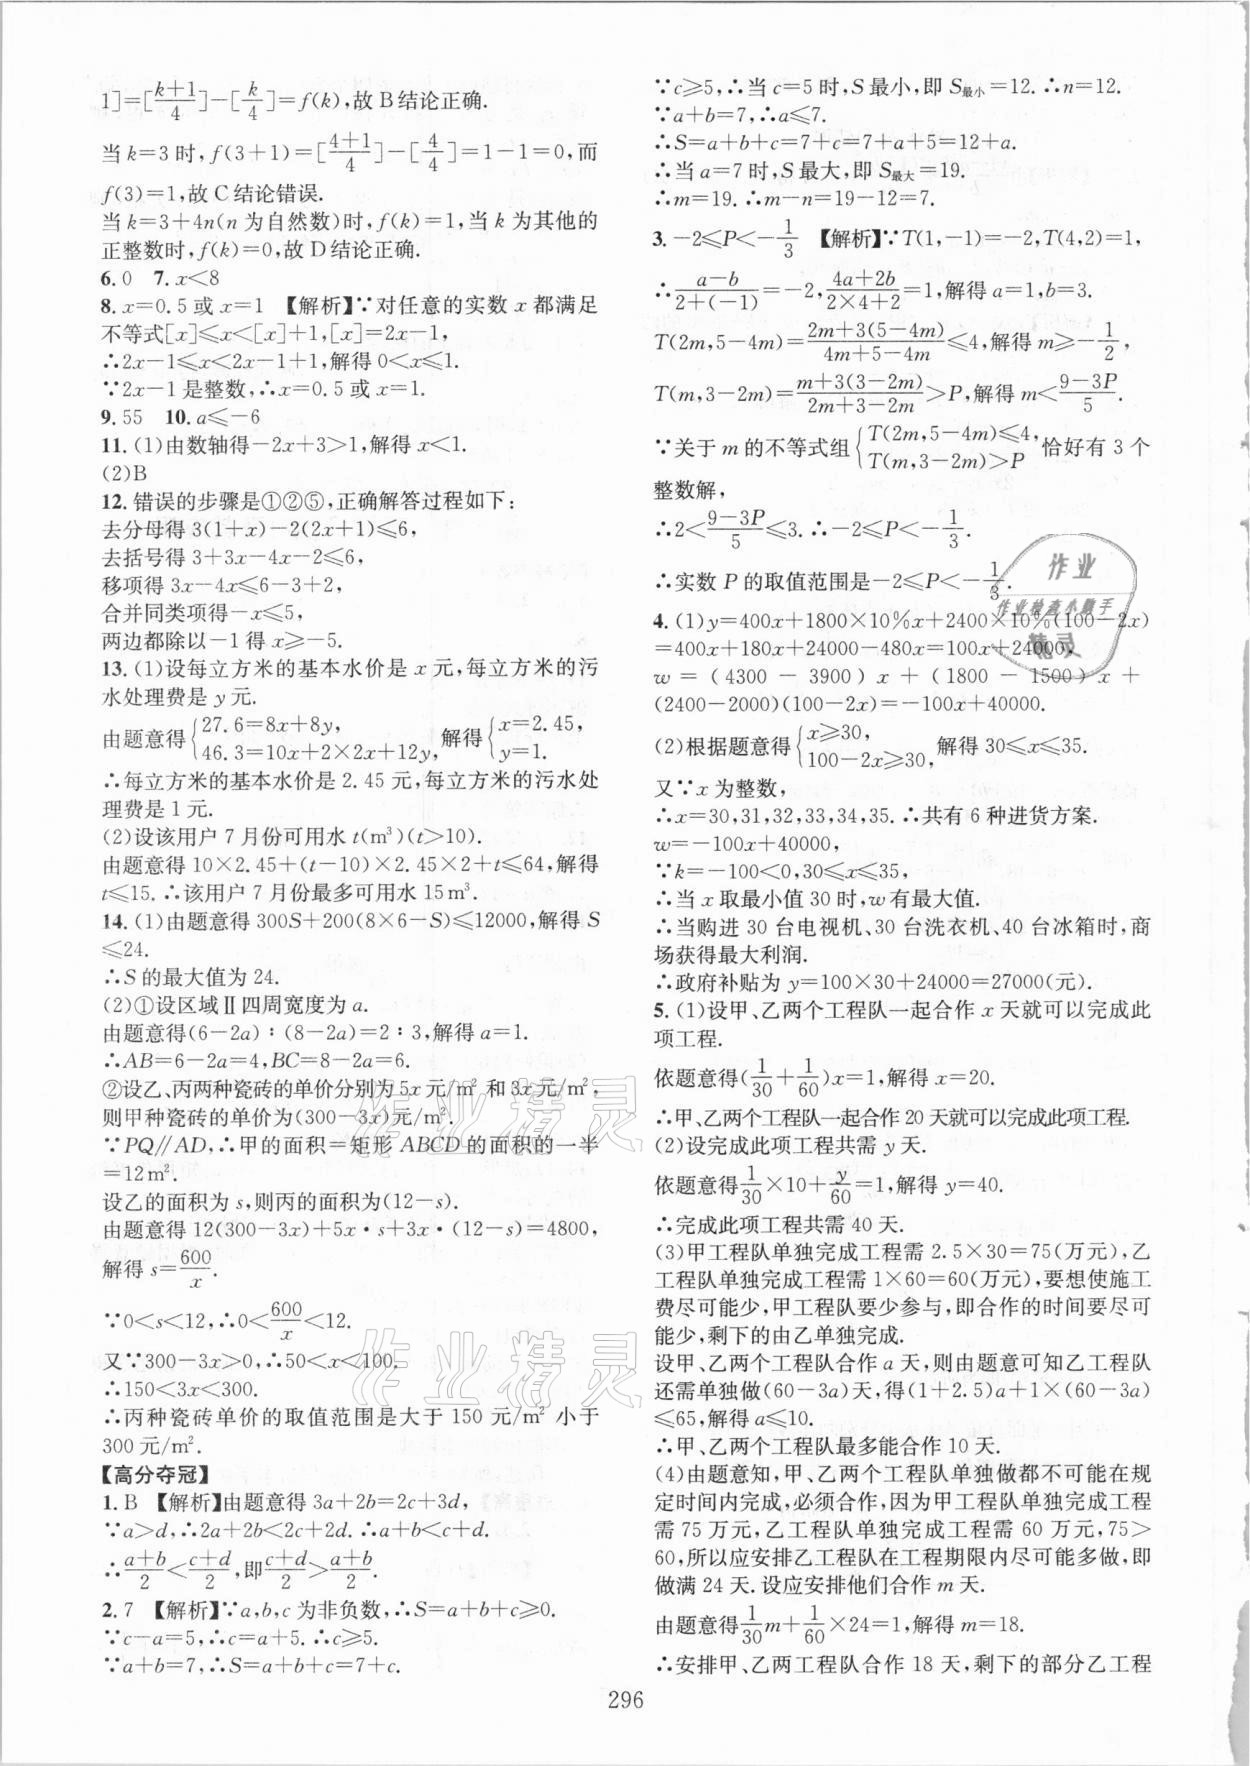 1]=[(k+1)/4]-[k/4]=f(k),故B结论正确.
当k=3时,f(3+1)=[(4+1)/4]-[4/4]=1-1=0,而
f(3)=1,故C结论错误.
当k=3+4n(n为自然数)时,f(k)=1,当k为其他的
正整数时,f(k)=0,故D结论正确.
6.0 7.x<8
8.x=0.5或x=1 【解析】∵对任意的实数x都满足
不等式[x]⩽x<[x]+1,[x]=2x-1,
∴2x-1⩽x<2x-1+1,解得0<x⩽1.
∵2x-1是整数,∴x=0.5或x=1.
9.55 10.a⩽-6
11.(1)由数轴得-2x+3>1,解得x<1.
(2)B
12.错误的步骤是①②⑤,正确解答过程如下:
去分母得3(1+x)-2(2x+1)⩽6,
去括号得3+3x-4x-2⩽6,
移项得3x-4x⩽6-3+2,
合并同类项得-x⩽5,
两边都除以-1得x⩾-5.
13.(1)设每立方米的基本水价是x元,每立方米的污
水处理费是y元.
由题意得{27.6=8x+8y, 46.3=10x+2×2x+12y, 解得{x=2.45, y=1.
∴每立方米的基本水价是2.45元,每立方米的污水处
理费是1元.
(2)设该用户7月份可用水t(m³)(t>10).
由题意得10×2.45+(t-10)×2.45×2+t⩽64,解得
t⩽15.∴该用户7月份最多可用水15m³.
14.(1)由题意得300S+200(8×6-S)⩽12000,解得S
⩽24.
∴S的最大值为24.
(2)①设区域Ⅱ四周宽度为a.
由题意得(6-2a):(8-2a)=2:3,解得a=1.
∴AB=6-2a=4,BC=8-2a=6.
②设乙、丙两种瓷砖的单价分别为5x元/m²和3x元/m²,
则甲种瓷砖的单价为(300-3x)元/m².
∵PQ∥AD,∴甲的面积=矩形ABCD的面积的一半
=12m².
设乙的面积为s,则丙的面积为(12-s).
由题意得12(300-3x)+5x·s+3x·(12-s)=4800,
解得s=600/x.
∵0<s<12,∴0<600/x<12.
又∵300-3x>0,∴50<x<100.
∴150<3x<300.
∴丙种瓷砖单价的取值范围是大于150元/m²小于
300元/m².
【高分夺冠】
1.B 【解析】由题意得3a+2b=2c+3d,
∵a>d,∴2a+2b<2c+2d.∴a+b<c+d.
∴(a+b)/2<(c+d)/2,即(c+d)/2>(a+b)/2.
2.7 【解析】∵a,b,c为非负数,∴S=a+b+c⩾0.
∵c-a=5,∴c=a+5.∴c⩾5.
∵a+b=7,∴S=a+b+c=7+c.
∵c⩾5,∴当c=5时,S最小,即S最小=12.∴n=12.
∵a+b=7,∴a⩽7.
∴S=a+b+c=7+c=7+a+5=12+a.
∴当a=7时,S最大,即S最大=19.
∴m=19.∴m-n=19-12=7.
3.-2⩽P<-1/3 【解析】∵T(1,-1)=-2,T(4,2)=1,
∴(a-b)/(2+(-1))=-2,(4a+2b)/(2×4+2)=1,解得a=1,b=3.
T(2m,5-4m)=(2m+3(5-4m))/(4m+5-4m)⩽4,解得m⩾-1/2,
T(m,3-2m)=(m+3(3-2m))/(2m+3-2m)>P,解得m<(9-3P)/5.
∵关于m的不等式组{T(2m,5-4m)⩽4, T(m,3-2m)>P 恰好有3个
整数解,
∴2<(9-3P)/5⩽3.∴-2⩽P<-1/3.
∴实数P的取值范围是-2⩽P<-1/3.
4.(1)y=400x+1800×10%x+2400×10%(100-2x)
=400x+180x+24000-480x=100x+24000,
w=(4300-3900)x+(1800-1500)x+
(2400-2000)(100-2x)=-100x+40000.
(2)根据题意得{x⩾30, 100-2x⩾30, 解得30⩽x⩽35.
又∵x为整数,
∴x=30,31,32,33,34,35.∴共有6种进货方案.
w=-100x+40000,
∵k=-100<0,30⩽x⩽35,
∴当x取最小值30时,w有最大值.
∴当购进30台电视机、30台洗衣机、40台冰箱时,商
场获得最大利润.
∴政府补贴为y=100×30+24000=27000(元).
5.(1)设甲、乙两个工程队一起合作x天就可以完成此
项工程.
依题意得(1/30+1/60)x=1,解得x=20.
∴甲、乙两个工程队一起合作20天就可以完成此项工程.
(2)设完成此项工程共需y天.
依题意得1/30×10+y/60=1,解得y=40.
∴完成此项工程共需40天.
(3)甲工程队单独完成工程需2.5×30=75(万元),乙
工程队单独完成工程需1×60=60(万元),要想使施工
费尽可能少,甲工程队要少参与,即合作的时间要尽可
能少,剩下的由乙单独完成.
设甲、乙两个工程队合作a天,则由题意可知乙工程队
还需单独做(60-3a)天,得(1+2.5)a+1×(60-3a)
⩽65,解得a⩽10.
∴甲、乙两个工程队最多能合作10天.
(4)由题意知,甲、乙两个工程队单独做都不可能在规
定时间内完成,必须合作,因为甲工程队单独完成工程
需75万元,乙工程队单独完成工程需60万元,75>
60,所以应安排乙工程队在工程期限内尽可能多做,即
做满24天.设应安排他们合作m天.
由题意得1/30m+1/60×24=1,解得m=18.
∴安排甲、乙两工程队合作18天,剩下的部分乙工程
296
作业
作业检查小助手
精灵
作业精灵
作业精灵